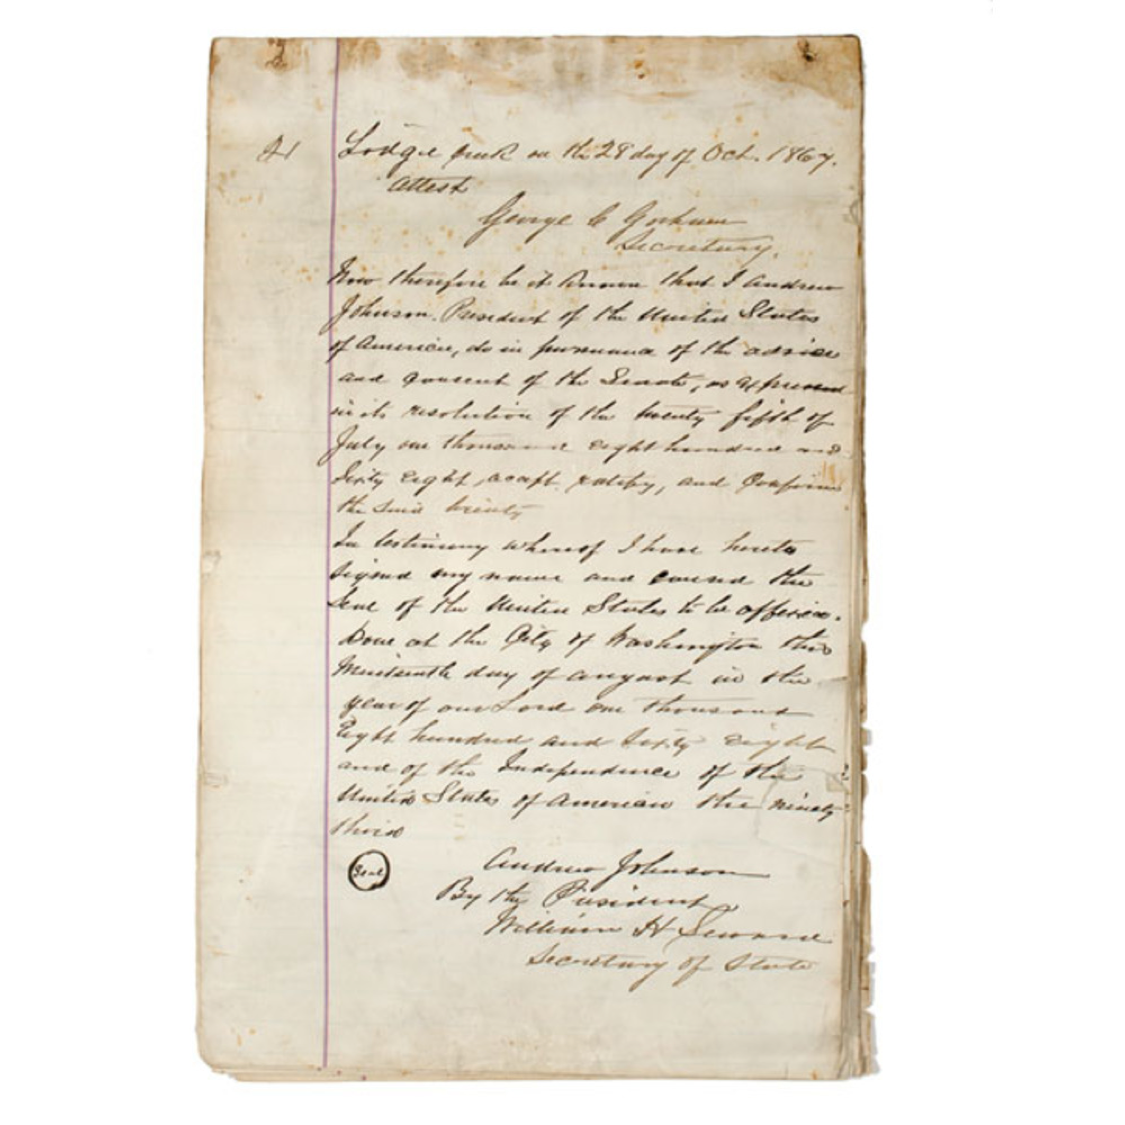 21
Lodge creek on the 28 day of Oct. 1867.
Attest
George C Gorham
Secretary.
Now therefore be it known that I Andrew
Johnson. President of the United States
of America, do in pursuance of the advice
and consent of the Senate, as expressed
in its resolution of the twenty fifth of
July one thousand eight hundred and
Sixty eight, accept ratify, and confirm
the said treaty
In testimony whereof I have hereto
signed my name and caused the
Seal of the United States to be affixed.
Done at the City of Washington this
Nineteenth day of august in the
year of our Lord one thousand
Eight hundred and Sixty eight
and of the Independence of the
United States of American the ninety
third
Seal
Andrew Johnson
By the President
William H Seward
Secretary of State